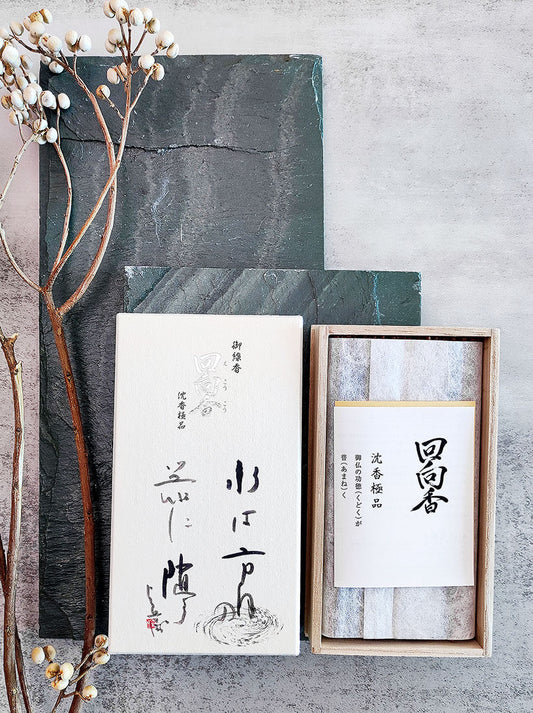 御線香
回向香
沈香極品
水は方円
器に随う
回向香
沈香極品
御仏の功徳(くどく)が
普(あまね)く